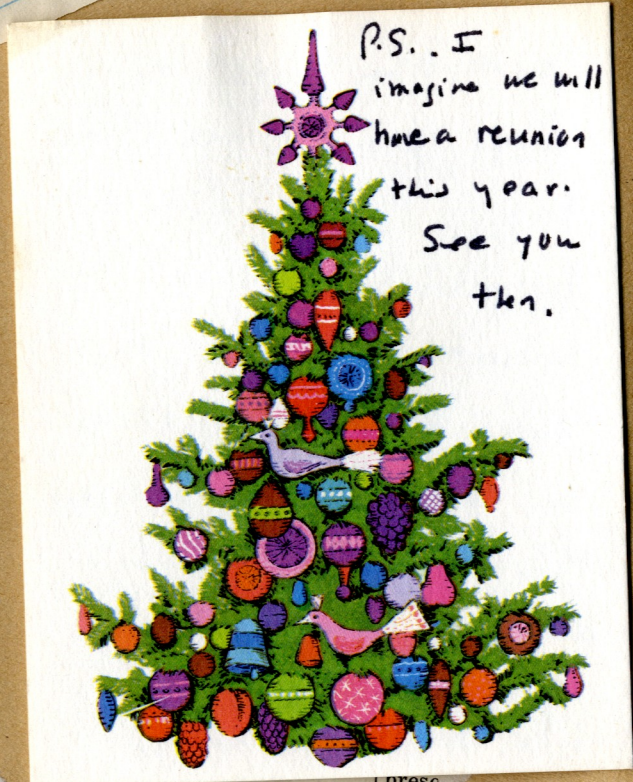 P.S.. I
imagine we will
have a reunion
this year.
See you
then.